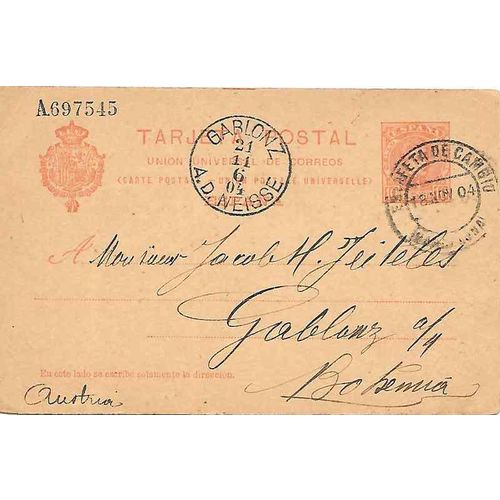 A697545
TARJETA POSTAL
UNION UNIVERSAL DE CORREOS
(CARTE POSTALE UNION POSTALE UNIVERSELLE)
ESPAÑA
GABLONZ
21
11
6
04
A.D. NEISSE
ESTAFETA DE CAMBIO
18 NOV 04
A Monsieur Jacob H. Jeiteles
Gablonz a/N
Bohemia
En este lado se escribe solamente la direccion.
Austria